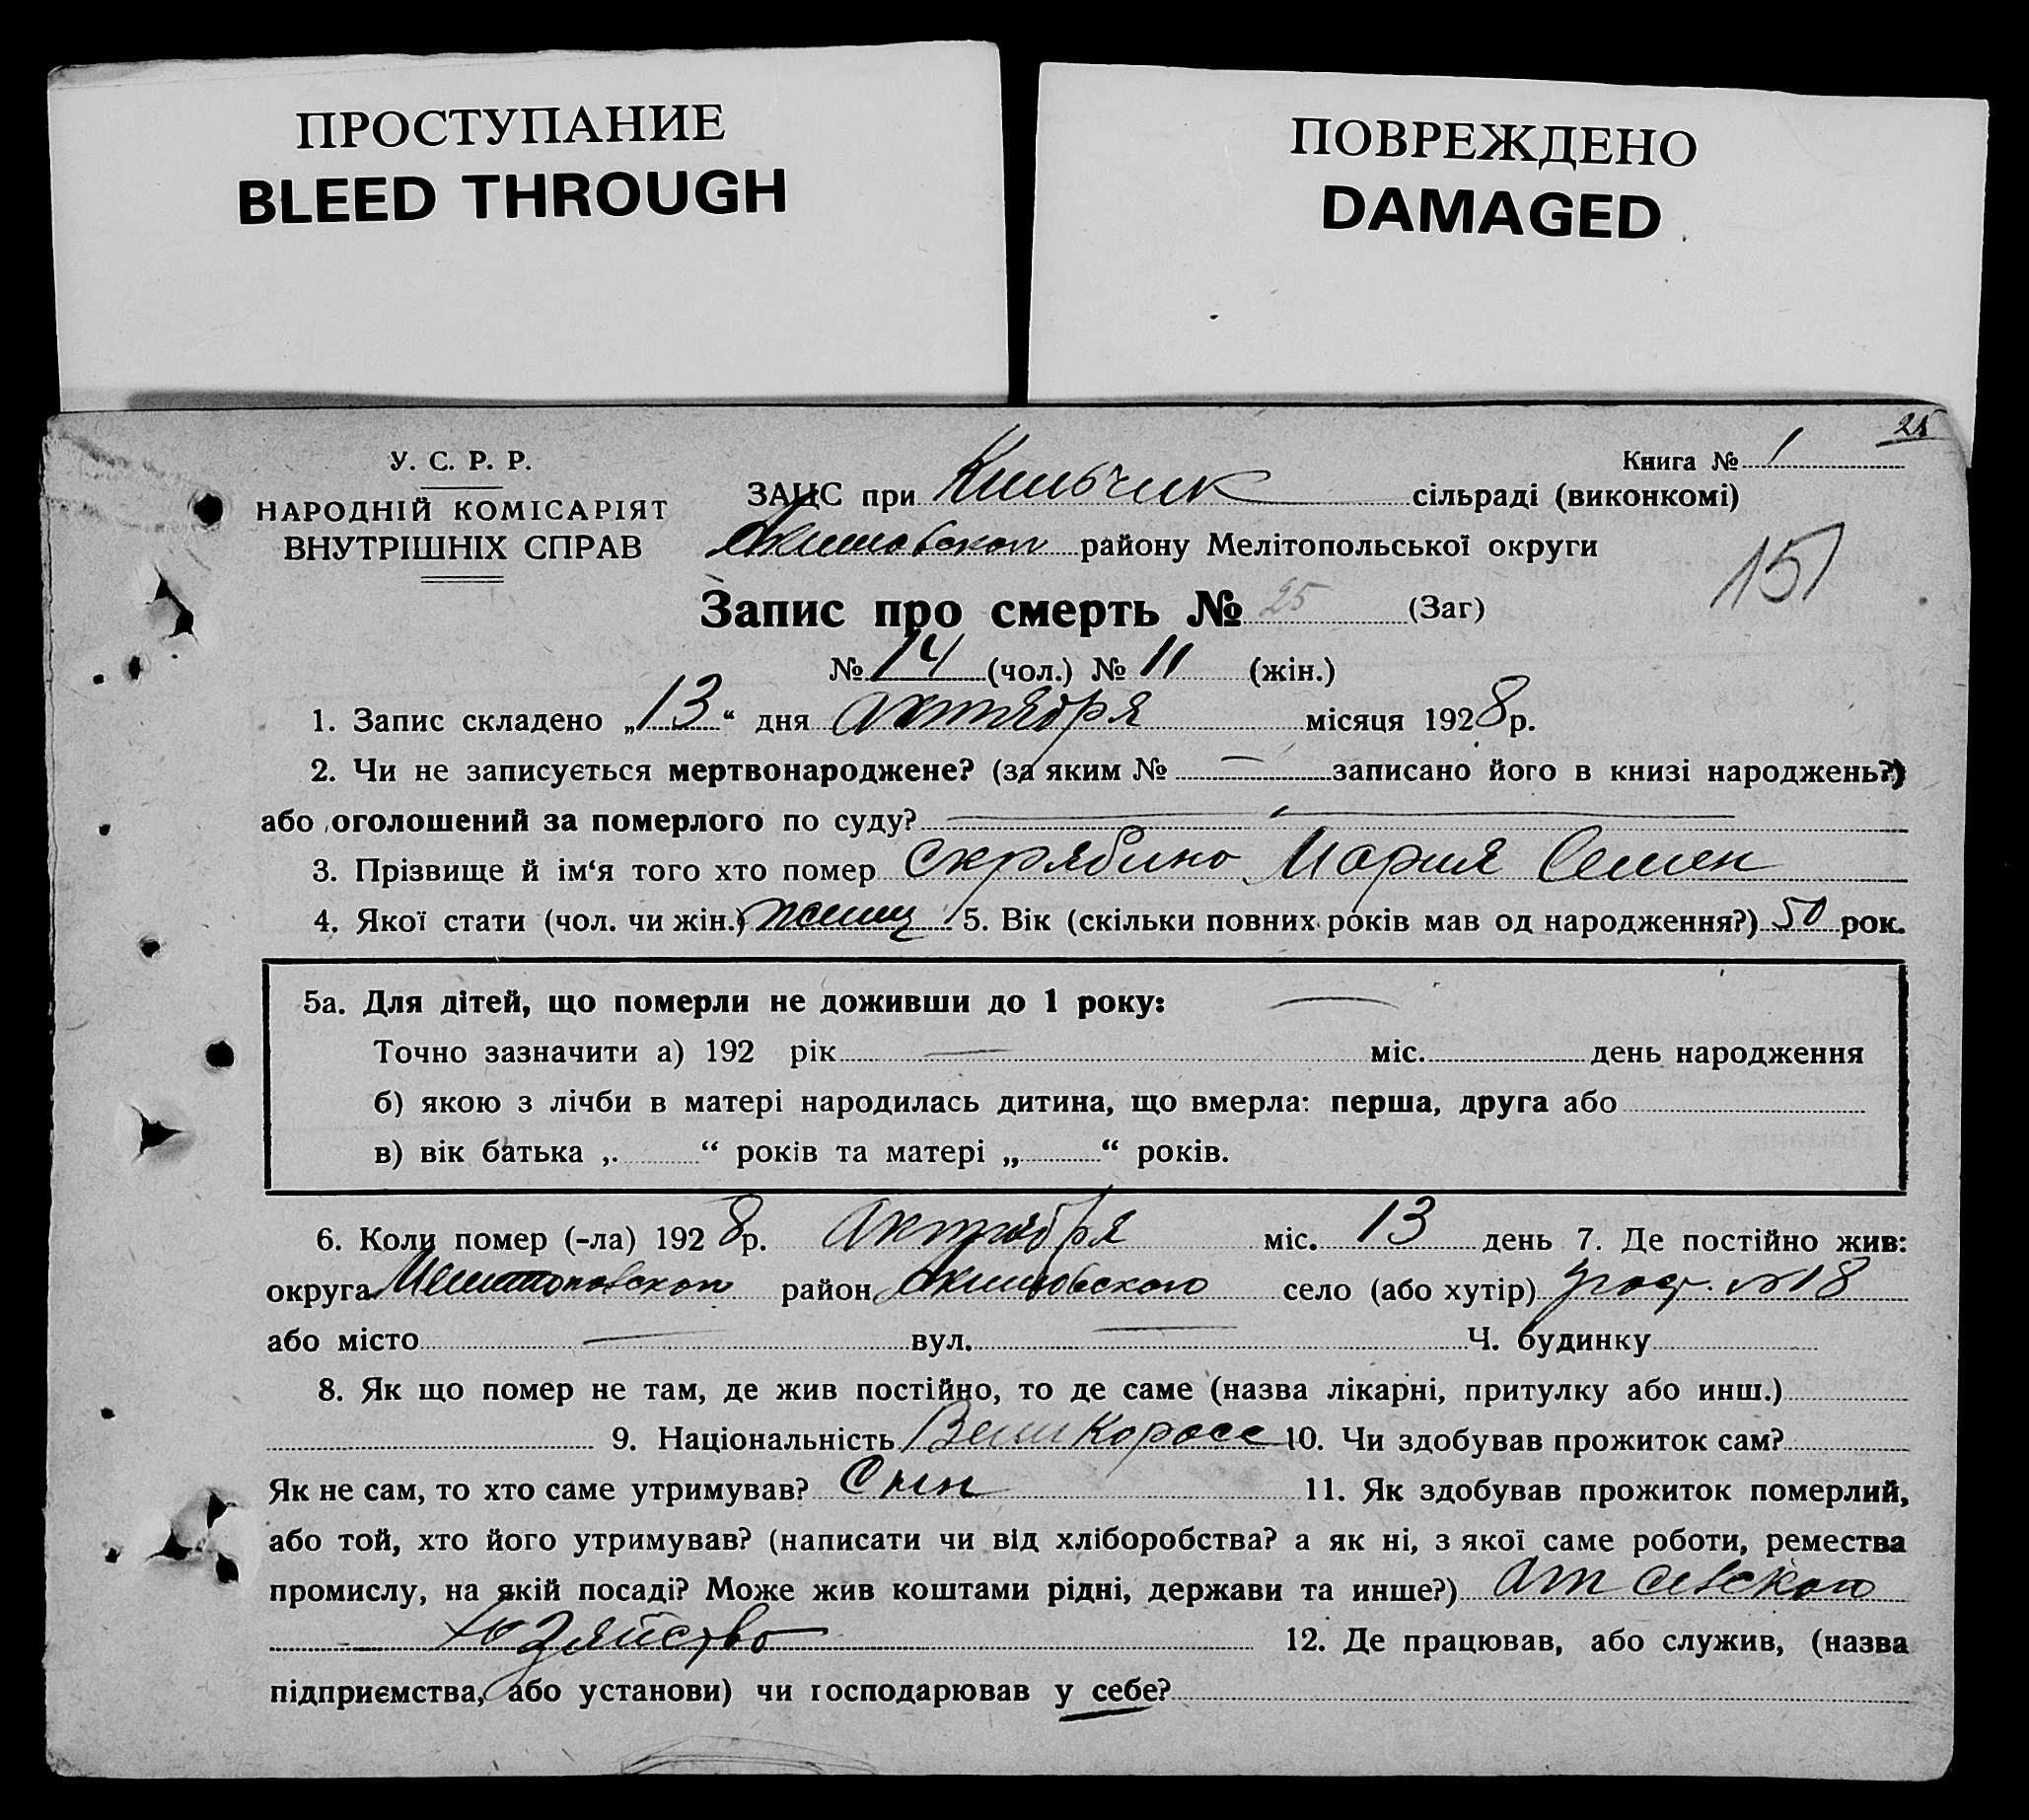 ПРОСТУПАНИЕ
BLEED THROUGH
ПОВРЕЖДЕНО
DAMAGED
25
У. С. Р. Р.
НАРОДНІЙ КОМІСАРІЯТ
ВНУТРІШНІХ СПРАВ
Книга № 1
ЗАЦС при Кильчик сільраді (виконкомі)
Акимовском району Мелітопольської округи
151
Запис про смерть № 25 (Заг)
№ 14 (чол.) № 11 (жін.)
1. Запис складено „13“ дня Октября місяця 1928 р.
2. Чи не записується мертвонароджене? (за яким № — записано його в книзі народжень?)
або оголошений за померлого по суду? —
3. Прізвище й ім‘я того хто помер Скрябино Мария Семен
4. Якої стати (чол. чи жін.) женщ 5. Вік (скільки повних років мав од народження?) 50 рок.
5а. Для дітей, що померли не доживши до 1 року: —
Точно зазначити а) 192 рік — міс. день народження
б) якою з лічби в матері народилась дитина, що вмерла: перша, друга або
в) вік батька „ “ років та матері „ “ років.
6. Коли помер (-ла) 1928 р. Октября міс. 13 день 7. Де постійно жив:
округа Мелитопольском район Акимовского село (або хутір) участ. №18
або місто — вул. — Ч. будинку
8. Як що помер не там, де жив постійно, то де саме (назва лікарні, притулку або инш.)
9. Національність Великоросс 10. Чи здобував прожиток сам?
Як не сам, то хто саме утримував? Сын 11. Як здобував прожиток померлий,
або той, хто його утримував? (написати чи від хліборобства? а як ні, з якої саме роботи, ремества
промислу, на якій посаді? Може жив коштами рідні, держави та инше?) От сельского
хозяйство 12. Де працював, або служив, (назва
підприємства, або установи) чи господарював у себе?